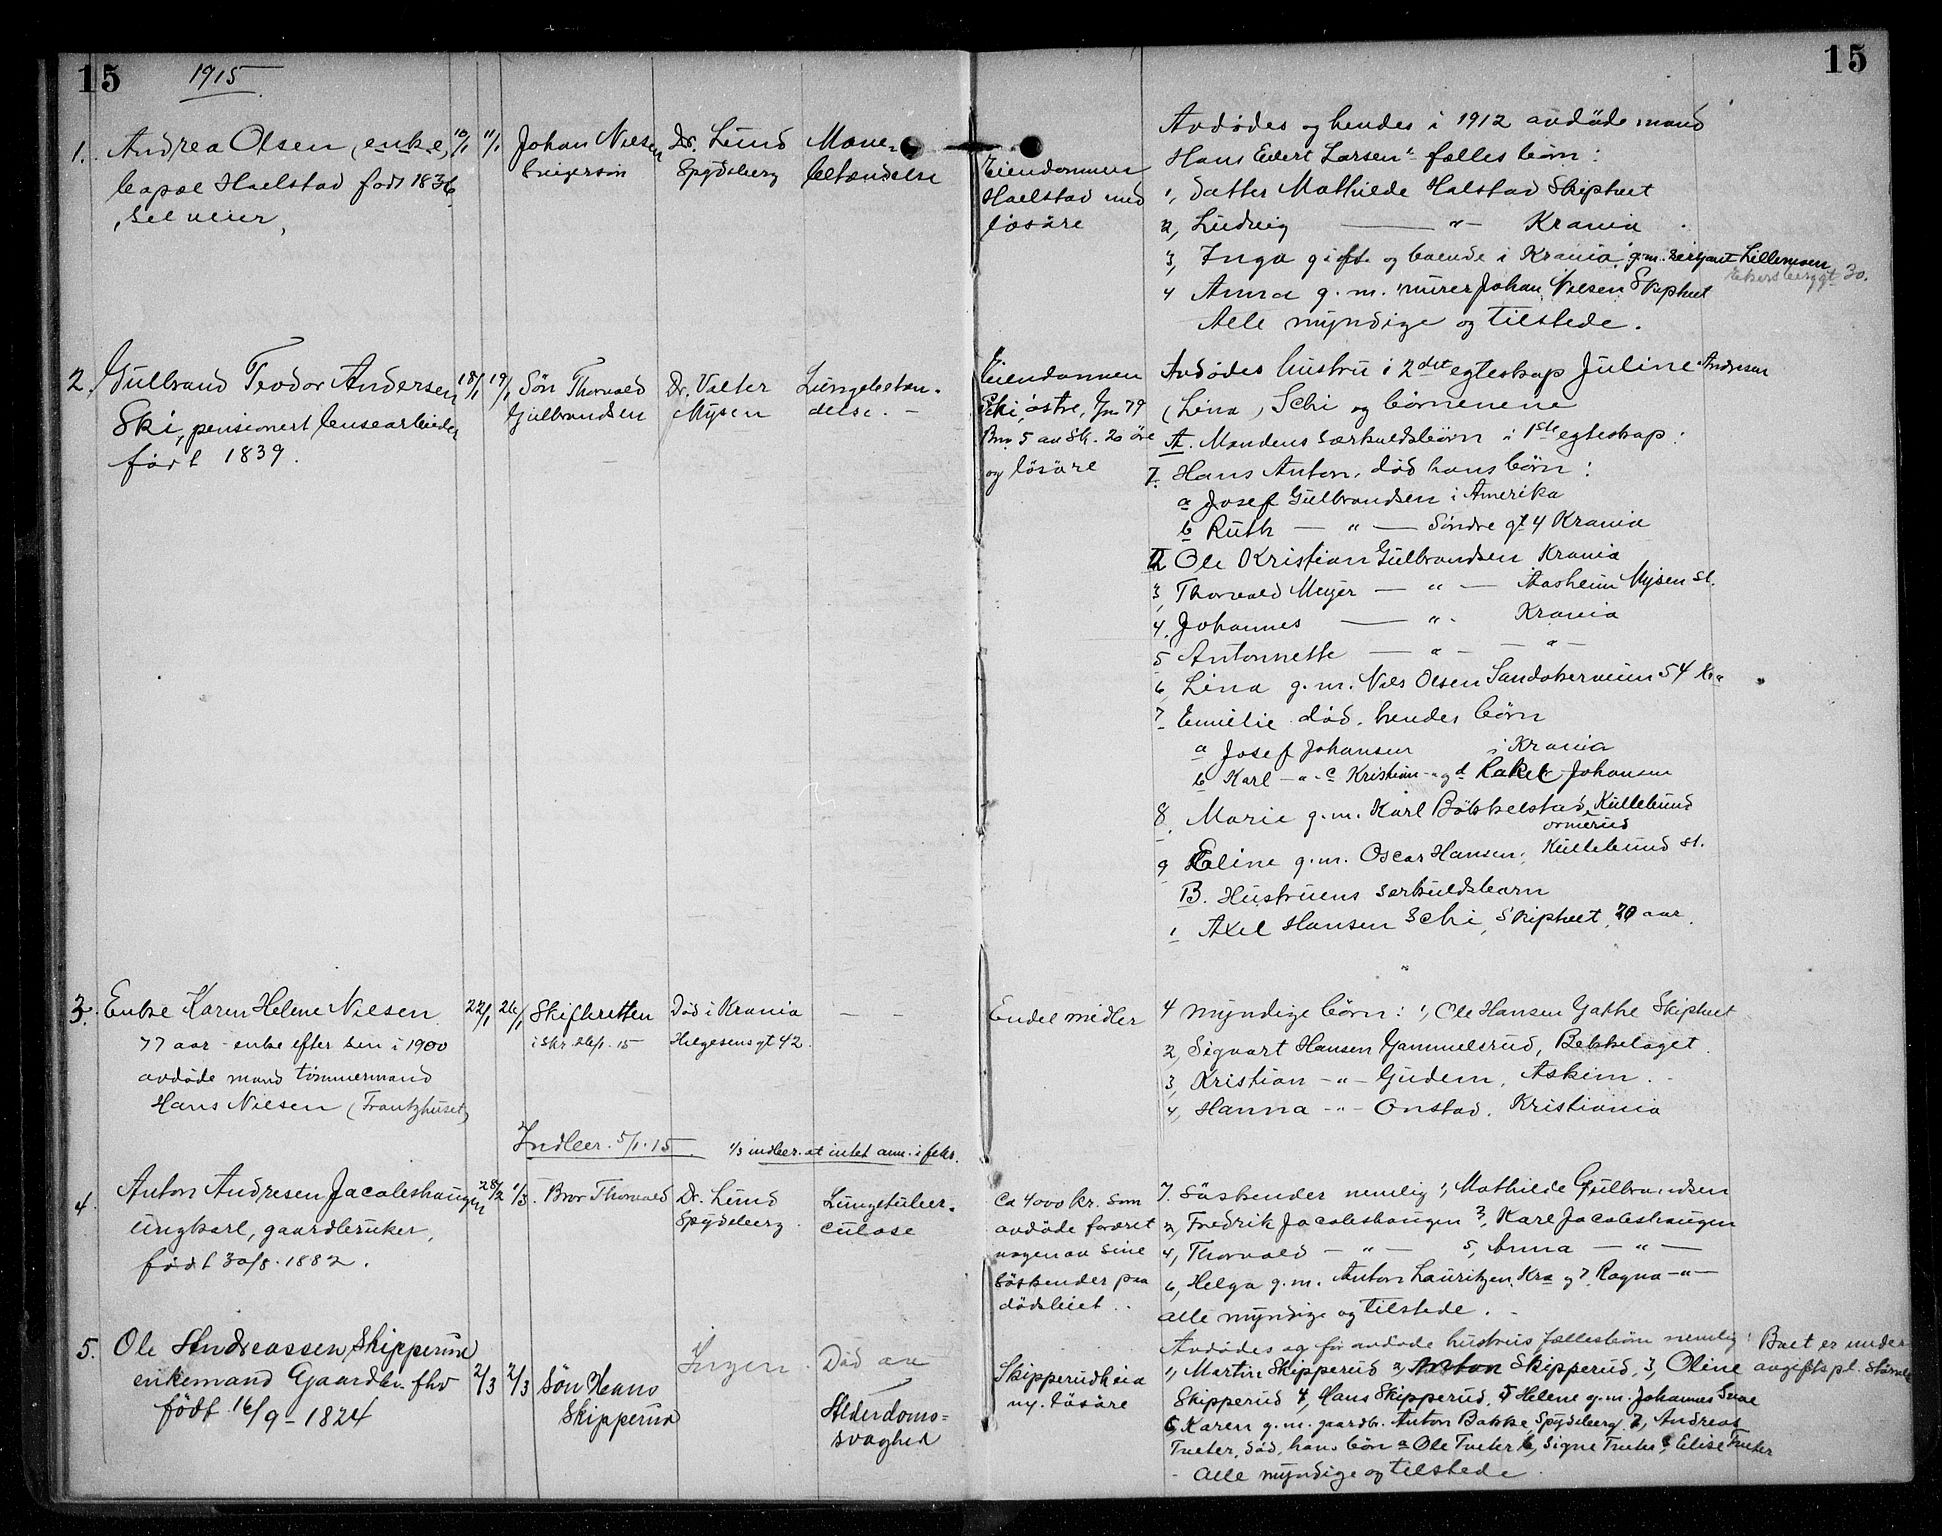 15
1915
15
1. Andrea Olsen, enke,
Haelstad født 1836,
selveier,
10/1
11/1
Johan Nilsen
Svigersøn
Dr. Lund
Spydeberg
Mave-
betændelse
Eiendommen
Haelstad med
løsøre
Avdødes og hendes i 1912 avdøde mand
Hans Edvert Larsens fælles børn:
1, datter Mathilde Halstad Skiptvet
2, Ludvig — " — Krania
3, Inga gift og boende i Krania, g.m. serjant Lillemoen
30.
4 Anna g. m. murer Johan Nilsen Skiptvet
Alle myndige og tilstede.
2. Gulbrand Teodor Andersen
Ski, pensionert linsearbeider
født 1839.
18/1
19/1
Søn Thorvald
Gulbrandsen
Dr. Valter
Mysen
Lungebetæn-
delse. —
Eiendommen
Ski østre, Gn 79
Bn. 5 av Sk. 26 øre
og løsøre
Avdødes hustru i 2det egteskap Juline Andresen
(Lina) Schi og børnenene
A. Mandens særkuldsbørn i 1ste egteskap:
1. Hans Anton, død hans børn:
a Josef Gulbrandsen i Amerika
b Ruth — " — Søndre gt 4 Krania
2 Ole Kristian Gulbrandsen Krania
3, Thorvald Meyer — " — Aasheim Mysen st.
4. Johannes — " — Krania
5 Antonnette — " — — " —
6, Lina g. m. Nils Olsen Sandakerveien 54 Kra
7 Emilie død. hendes børn
a Josef Johansen i Krania
b Karl — " — c Kristian — " og d Rakel Johansen
8. Marie g. m. Karl Bøkkelstad, Kullebund
ormerud
9 Eline g. m. Oscar Hansen, Kullebund st.
B. Hustruens særkuldsbarn
1 Axel Hansen Schi, Skiptvet, 20 aar.
3. Enke Karen Helene Nilsen
77 aar - enke efter sin i 1900
avdøde mand tømmermand
Hans Nilsen (Frantzhuset)
22/1
26/1
Skifteretten
i skr. 26/1. 15
Død i Krania
Helgesens gt 42.
— —
Endel midler
4 myndige børn: 1, Ole Hansen Gathe Skiptvet
2, Sigvart Hansen Gammelsrud, Bekkelaget.
3, Kristian — " — Gudem, Askim.
4, Hanna — " — Onstad, Kristiania
Indber. 5/1. 15
1/3 indber. at intet anm. i febr.
4. Anton Andresen Jacobshaugen
ungkarl, gaardbruker,
født 30/8. 1882.
28/2
1/3
Bror Thorvald
Dr. Lund
Spydeberg
Lungetuber-
culose
Ca 4000 kr. som
avdøde foræret
nogen av sine
søskender paa
dødsleiet.
7. søskender nemlig 1, Mathilde Gulbrandsen
2, Fredrik Jacobshaugen 3, Karl Jacobshaugen
4, Thorvald — " — 5, Anna — " —
6, Helga g. m. Anton Lauritzen, Kra og 7. Ragna — " —
alle myndige og tilstede.
5. Ole Andreassen Skipperud
enkemand Gaardbr. fhv
født 16/9 - 1824
2/3
2/3
Søn Hans
Skipperud
Ingen
Død av
Alderdoms-
svaghed
Skipperudheia
løsøre
Avdødes og før avdøde hustrus fællesbørn nemlig:
1, Martin Skipperud 2, Anton Skipperud, 3, Oline
Skipperud 4, Hans Skipperud, 5 Helene g. m. Johannes
6, Karen g. m. gaardb. Anton Bakke, Spydeberg 7, Andreas
Tveter, død, hans børn a Ole Tveter b, Signe Tveter c Elise Tveter
- alle myndige og tilstede.
Boet er under
avgiftspl. størrelse